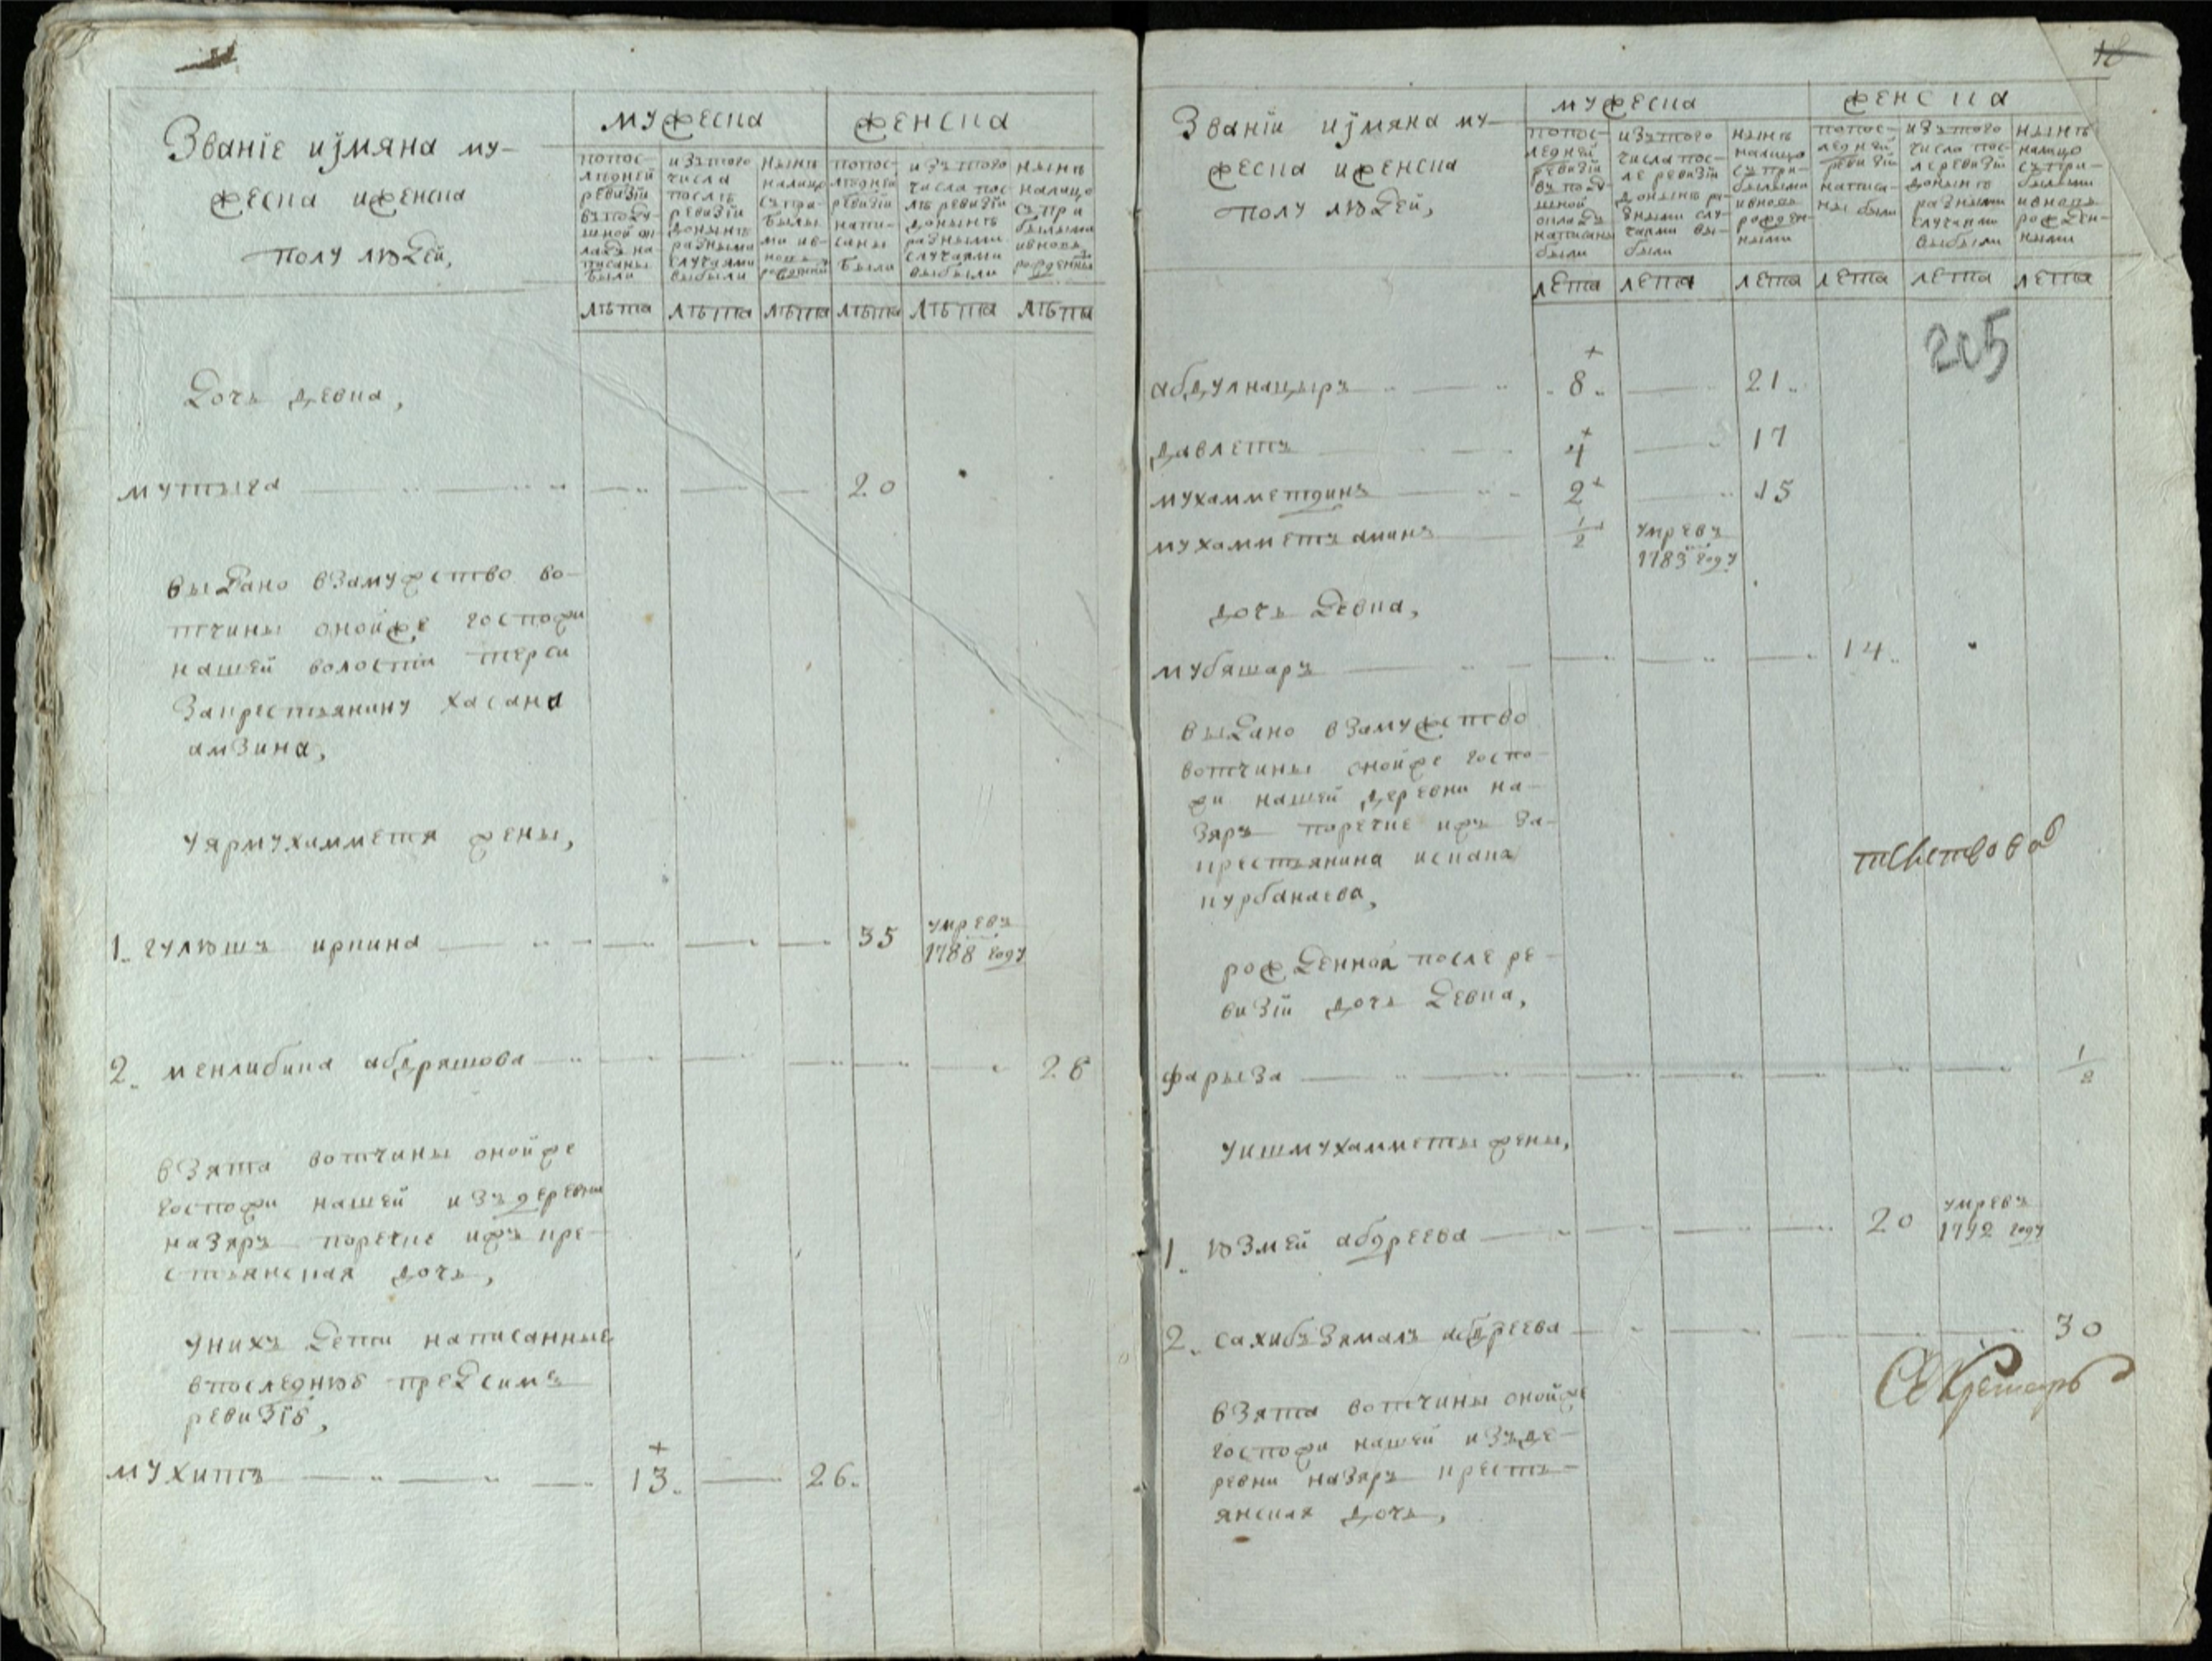 Званіе иjмяна му-
жеска иженска
полу людей,
мужеска
женска
попос-
лѣдней
ревизіи
въподу-
шной ок-
ладъ на-
писаны
были
изътого
числа
послѣ
ревизіи
донынѣ
разными
случаями
выбыли
нынѣ
налицо
съпри-
былы-
ми ив-
новь
рожденны
попос-
лѣдней
ревизіи
напи-
саны
были
изътого
числа пос-
лѣ ревизіи
донынѣ
разными
случаями
выбыли
нынѣ
налицо
съпри
былыми
ивновь
рожденны
лѣта лѣта лѣта лѣта лѣта лѣты
Дочь девка,
мутыга 20
выдано взамужство во-
тчины онойже госпожи
нашей волости терси
закрестьянину хасана
амзина,
уярмухамметя жены,
1. гулюшъ иркина 35 умревъ
1788 году
2. менлибика абдряшова 28
взята вотчины онойже
госпожи нашей изъдеревни
назяръ поречие ижъ кре-
стьянская дочь,
унихъ дети написанные
впоследнюю предсимъ
ревизію,
мухитъ 13. 26.
18
Званіи иjмяна му-
жеска иженска
полу людей,
мужеска
женска
попос-
ледней
ревизіи
въподу-
шной
окладъ
написаны
были
изътого
числа пос-
ле ревизіи
донынѣ ра-
зными слу-
чаями вы-
были
нынѣ
налицо
съпри-
былыми
ивновь
рожден-
ными
попос-
ледней
ревизіи
написа-
ны были
изътого
числа пос-
ле ревизіи
донынѣ
разными
случаями
выбыли
нынѣ
налицо
съпри-
былыми
ивновь
рожден-
ными
лета лета лета лета лета леты
205
абдулнацыръ 8. 21.
давлетъ 4 17
мухамметдинъ 2 15
мухамметъ аминъ 1/2 умревъ
1783 году
дочь девка,
мубяшаръ 14.
выдано взамужство
вотчины онойже госпо-
жи нашей деревни на-
зяръ поречие ижъ за-
крестьянина искака
курбанаева,
рожденная после ре-
визіи дочь девка,
фарыза 1/2
уишмухамметы жены,
1. юзмей абдреева 20 умревъ
1792 году
2. сахибъзямалъ абдреева 30
Секретарь
взята вотчины онойже
госпожи нашей изъде-
ревни назяръ кресть-
янская дочь,